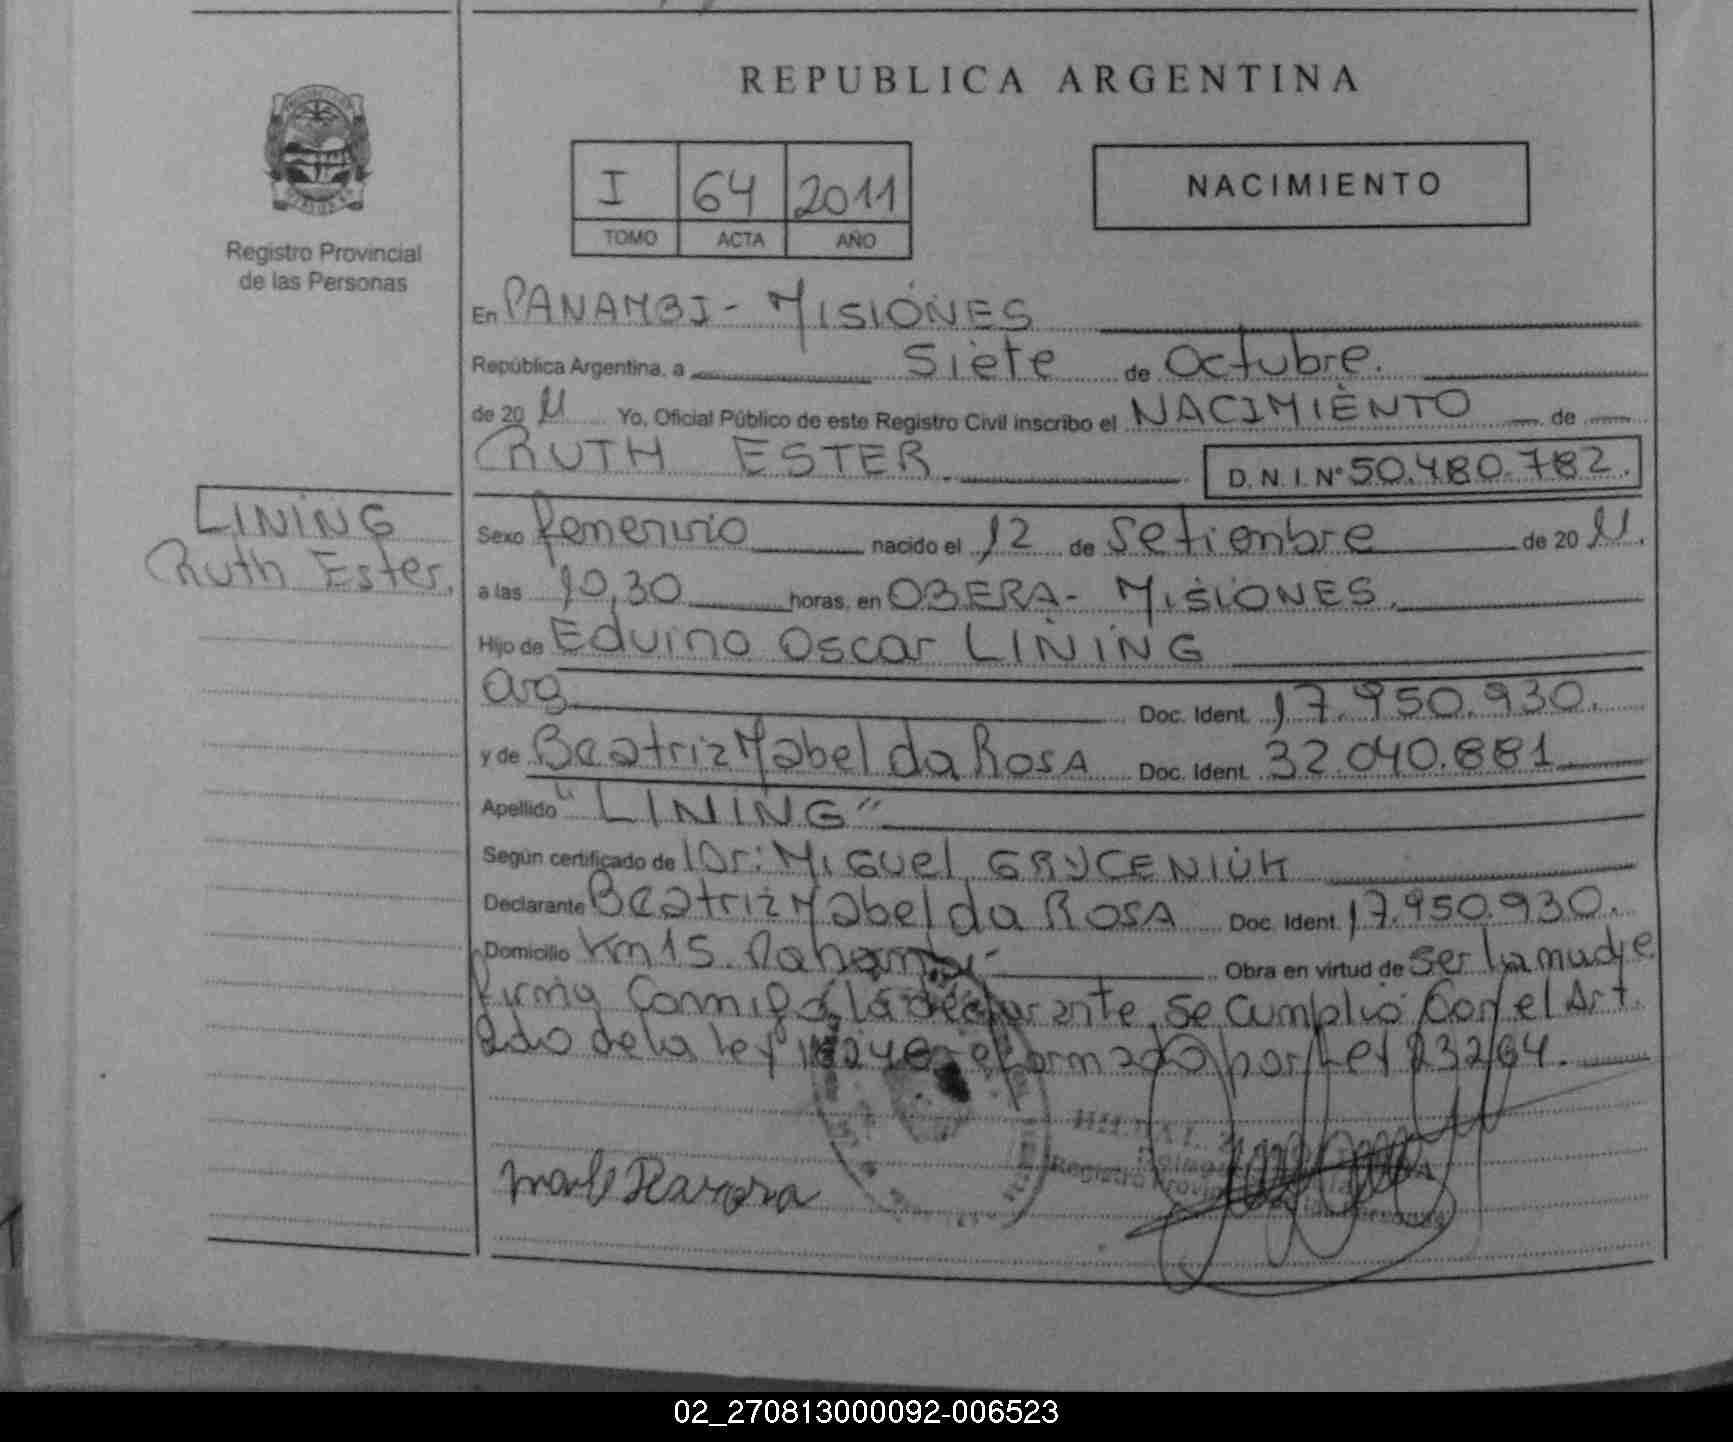 REPUBLICA ARGENTINA
I 64 2011
TOMO ACTA AÑO
NACIMIENTO
Registro Provincial
de las Personas
En PANAMBI - MISIONES
República Argentina, a Siete de Octubre.
de 20 11 Yo, Oficial Público de este Registro Civil inscribo el NACIMIENTO de
RUTH ESTER D. N. I. Nº 50.480.782.
LINING
Ruth Ester.
Sexo femenino nacido el 12 de Setiembre de 20 11.
a las 10,30 horas, en OBERA - MISIONES.
Hijo de Eduino Oscar LINING
arg Doc. Ident. 17.950.930.
y de Beatriz Mabel da Rosa Doc. Ident. 32.040.881
Apellido "LINING"
Según certificado de Dr: MIGUEL GRYCENIUK
Declarante Beatriz Mabel da Rosa Doc. Ident. 17.950.930.
Domicilio Km 15. Panambi - Obra en virtud de ser la madre
firma conmigo la declarante, se cumplio con el Art.
2do de la ley reformado por Ley 23264.
Registro Provincial de las Personas
02_270813000092-006523